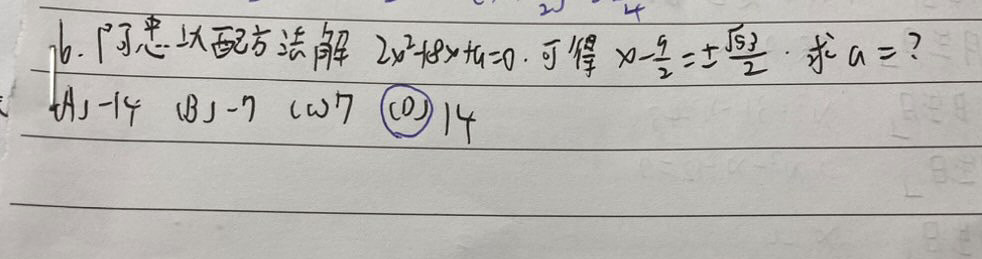 16. 阿惠以配方法解 2x²+8x+a=0. 可得 x-9/2=±√53/2. 求 a=?
(A) -14 (B) -7 (C) 7 (D) 14